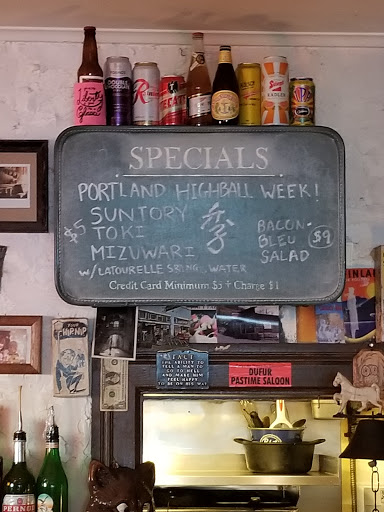 SPECIALS
PORTLAND HIGHBALL WEEK!
$5
SUNTORY
TOKI
MIZUWARI
W/LATOURELLE SPRING WATER
BACON-
BLEU
SALAD
$9
Credit Card Minimum $5 + Charge $1
TACT
THE ABILITY TO
TELL A MAN TO
GO TO HELL
AND MAKE HIM
FEEL HAPPY
TO BE ON HIS WAY
DUFUR
PASTIME SALOON
DOUBLE
CHOCOLATE
R
TECATE
Stiegl
RADLER
PERNOD